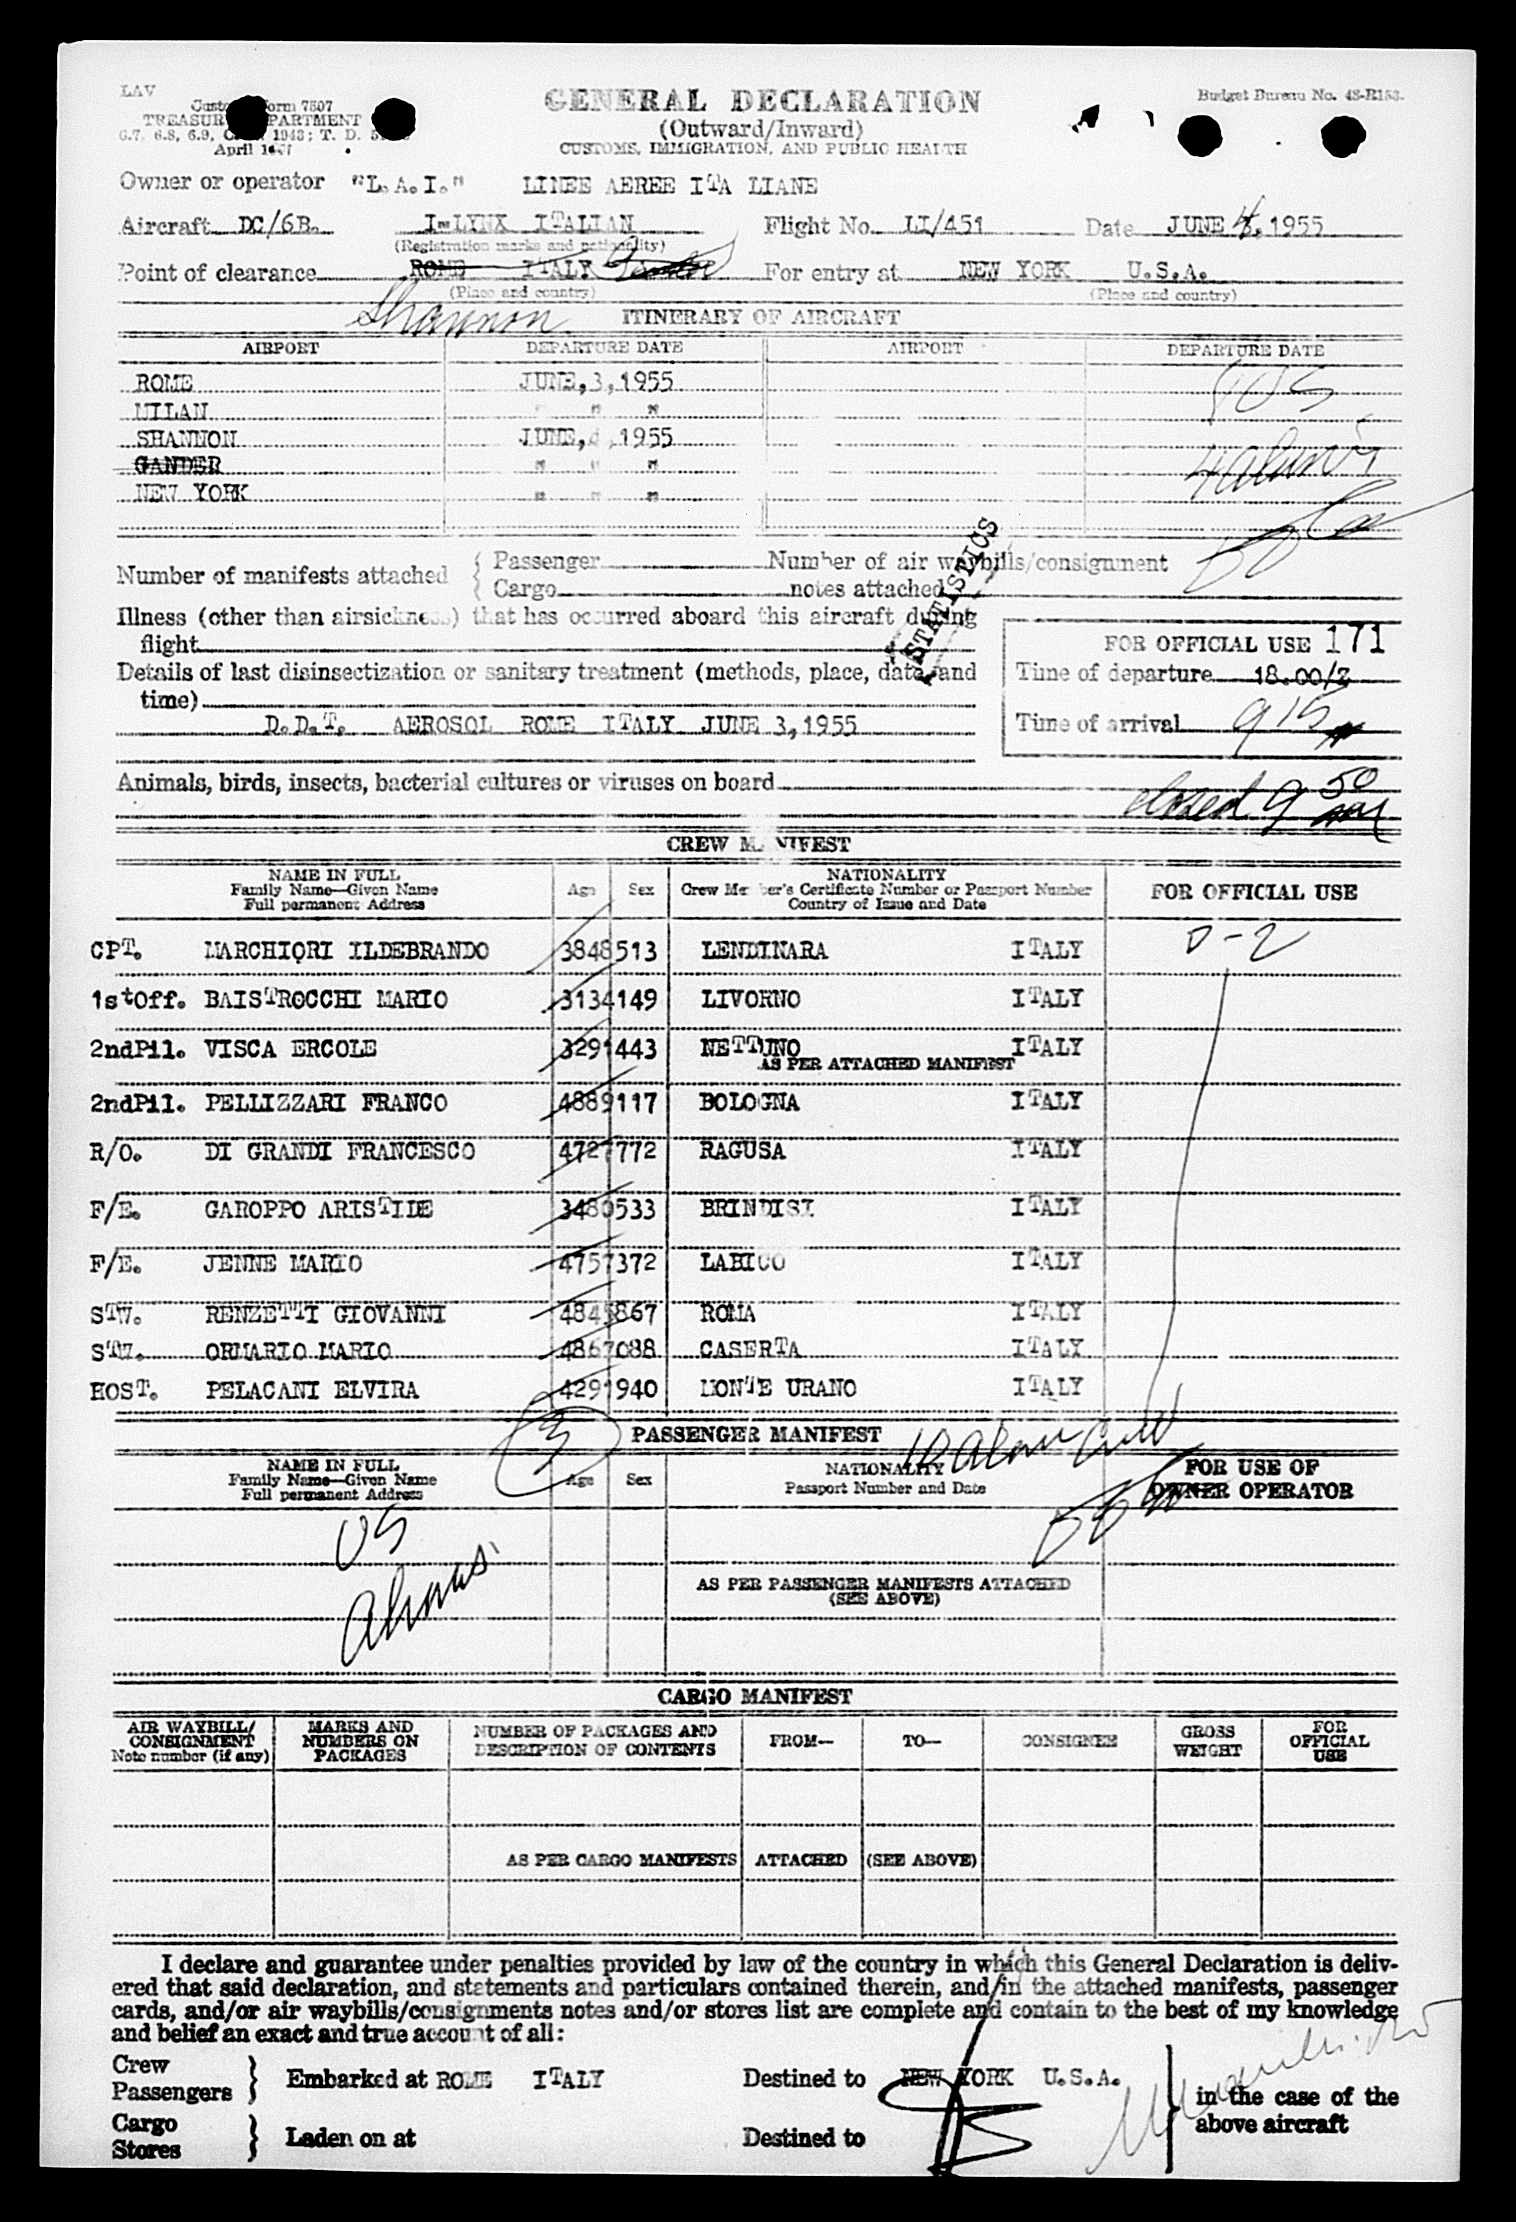 LAV
GENERAL DECLARATION
Budget Bureau No. 48-R153.
(Outward/Inward)
CUSTOMS, IMMIGRATION, AND PUBLIC HEALTH
Customs Form 7507
TREASURY DEPARTMENT
April
Owner or operator "L.A.I." LINEE AEREE ITA LIANE
Aircraft DC/6B. I-LYNX ITALIAN Flight No. LI/451 Date JUNE 4, 1955
(Registration marks and nationality)
Point of clearance ROME ITALY For entry at NEW YORK U.S.A.
(Place and country) (Place and country)
Shannon
ITINERARY OF AIRCRAFT
AIRPORT DEPARTURE DATE AIRPORT DEPARTURE DATE
ROME JUNE,3,1955
MILAN " " "
SHANNON JUNE, ,1955
GANDER " " "
NEW YORK " " "
Number of manifests attached { Passenger
Cargo
Number of air waybills/consignment
notes attached
STATISTICS
Illness (other than airsickness) that has occurred aboard this aircraft during
flight
Details of last disinsectization or sanitary treatment (methods, place, date, and
time)
D.D.T. AEROSOL ROME ITALY JUNE 3,1955
FOR OFFICIAL USE 171
Time of departure 18.00/Z
Time of arrival 915
Animals, birds, insects, bacterial cultures or viruses on board
closed 9 50
CREW MANIFEST
NAME IN FULL
Family Name—Given Name
Full permanent Address
Age Sex
NATIONALITY
Crew Member's Certificate Number or Passport Number
Country of Issue and Date
FOR OFFICIAL USE
CPT. MARCHIORI ILDEBRANDO 3848513 LENDINARA ITALY D-2
1stOff. BAISTROCCHI MARIO 3134149 LIVORNO ITALY
2ndPil. VISCA ERCOLE 3291443 NETTUNO ITALY
AS PER ATTACHED MANIFEST
2ndPil. PELLIZZARI FRANCO 4889117 BOLOGNA ITALY
R/O. DI GRANDI FRANCESCO 4727772 RAGUSA ITALY
F/E. GAROPPO ARISTIDE 3480533 BRINDISI ITALY
F/E. JENNE MARIO 4757372 LABICO ITALY
STW. RENZETTI GIOVANNI 4845867 ROMA ITALY
STW. ORMARIO MARIO 4867088 CASERTA ITALY
HOST. PELACANI ELVIRA 4291940 MONTE URANO ITALY
3
PASSENGER MANIFEST
NAME IN FULL
Family Name—Given Name
Full permanent Address
Age Sex
NATIONALITY
Passport Number and Date
FOR USE OF
OWNER OPERATOR
US
AS PER PASSENGER MANIFESTS ATTACHED
(SEE ABOVE)
CARGO MANIFEST
AIR WAYBILL/
CONSIGNMENT
Note number (if any)
MARKS AND
NUMBERS ON
PACKAGES
NUMBER OF PACKAGES AND
DESCRIPTION OF CONTENTS
FROM—
TO—
CONSIGNEE
GROSS
WEIGHT
FOR
OFFICIAL
USE
AS PER CARGO MANIFESTS ATTACHED (SEE ABOVE)
I declare and guarantee under penalties provided by law of the country in which this General Declaration is deliv-
ered that said declaration, and statements and particulars contained therein, and/in the attached manifests, passenger
cards, and/or air waybills/consignments notes and/or stores list are complete and contain to the best of my knowledge
and belief an exact and true account of all:
Crew
Passengers } Embarked at ROME ITALY Destined to NEW YORK U.S.A.
in the case of the
above aircraft
Cargo
Stores } Laden on at Destined to